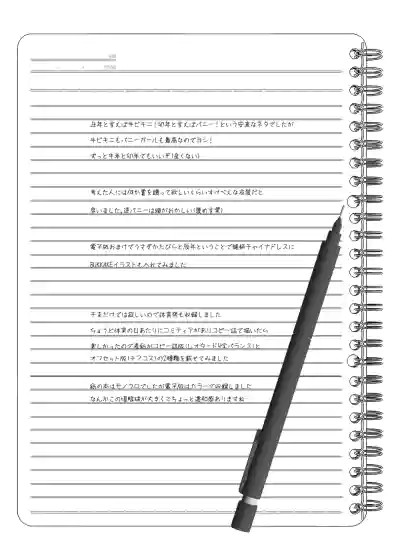 丑年と言えば牛ビキニ！卯年と言えばバニー！という安直なネタでしたが
牛ビキニもバニーガールも最高なのでヨシ！
ずっと牛年と卯年でもいいぞ(良くない)
考えた人には何か賞を贈って欲しいくらいすけべえな衣服だと
思いました。逆バニーは頭がおかしい(褒め言葉)
電子版おまけでうすぎかたびらと辰年ということで極細チャイナドレスに
BUKKAKEイラストも入れてみました
干支だけでは寂しいので体育祭も収録しました
ちょうど体育の日あたりにコミティアがありコピー誌で描いたら
楽しかったので表紙がコピー誌版(レオタードVSビランス)と
オフセット版(チアコス)の2種類を載せてみました
紙の本はモノクロでしたが電子版はカラーで収録しました
なんかこの描眼球が大きくてちょっと違和感ありますね